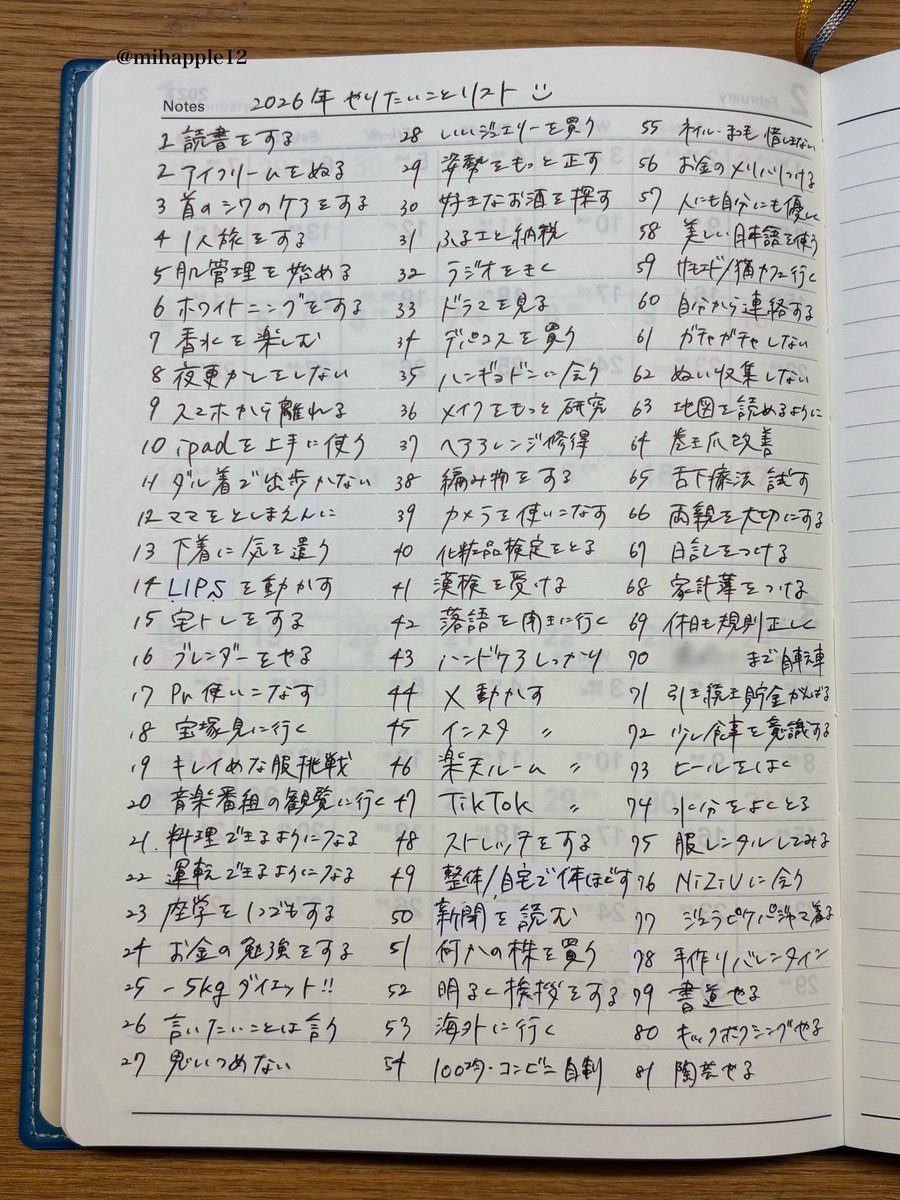 @mihapple12
Notes 2026年 やりたいことリスト
1 読書をする
2 アイクリームをぬる
3 首のシワのケアをする
4 1人旅をする
5 肌管理を始める
6 ホワイトニングをする
7 香水を楽しむ
8 夜更かしをしない
9 スマホから離れる
10 ipadを上手に使う
11 ダル着で出歩かない
12 ママをとしまえんに
13 下着に気を遣う
14 LIPSを動かす
15 宅トレをする
16 ブレンダーをやる
17 Pn 使いこなす
18 宝塚見に行く
19 キレイめな服挑戦
20 音楽番組の観覧に行く
21. 料理できるようになる
22 運転できるようになる
23 座学を1つでもする
24 お金の勉強をする
25 -5kgダイエット!!
26 言いたいことは言う
27 思いつめない
28 いいジュエリーを買う
29 姿勢をもっと正す
30 好きなお酒を探す
31 ふるさと納税
32 ラジオをきく
33 ドラマを見る
34 デパコスを買う
35 ハンギョドンに会う
36 メイクをもっと研究
37 ヘアアレンジ修得
38 編み物をする
39 カメラを使いこなす
40 化粧品検定をとる
41 漢検を受ける
42 落語を聞きに行く
43 ハンドケアしっかり
44 X 動かす
45 インスタ 〃
46 楽天ルーム 〃
47 TikTok 〃
48 ストレッチをする
49 整体/自宅で体ほぐす
50 新聞を読む
51 何かの株を買う
52 明るく挨拶をする
53 海外に行く
54 100均・コンビニ自制
55 ネイル・まつも惜しまない
56 お金のメリハリつける
57 人にも自分にも優しく
58 美しい日本語を使う
59 サモエド/猫カフェ行く
60 自分から連絡する
61 ガチャガチャしない
62 ぬい収集しない
63 地図を読めるように
64 巻き爪改善
65 舌下療法試す
66 両親を大切にする
67 日記をつける
68 家計簿をつける
69 休日も規則正しく
70 まで自転車
71 引き続き貯金がんばる
72 少し食事を意識する
73 ヒールをはく
74 水分をよくとる
75 服レンタルしてみる
76 NiziUに会う
77 ジェラピケパジャマ着る
78 手作りバレンタイン
79 書道やる
80 キックボクシングやる
81 陶芸やる